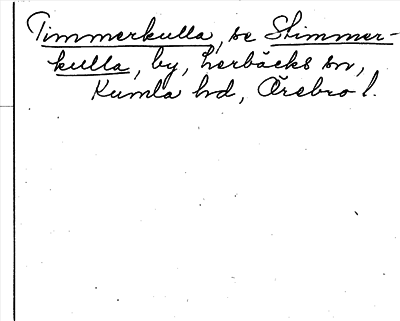 Timmerkulla, se Stimmer-
kulla, by, Lerbäcks sn,
Kumla hd, Örebro l.